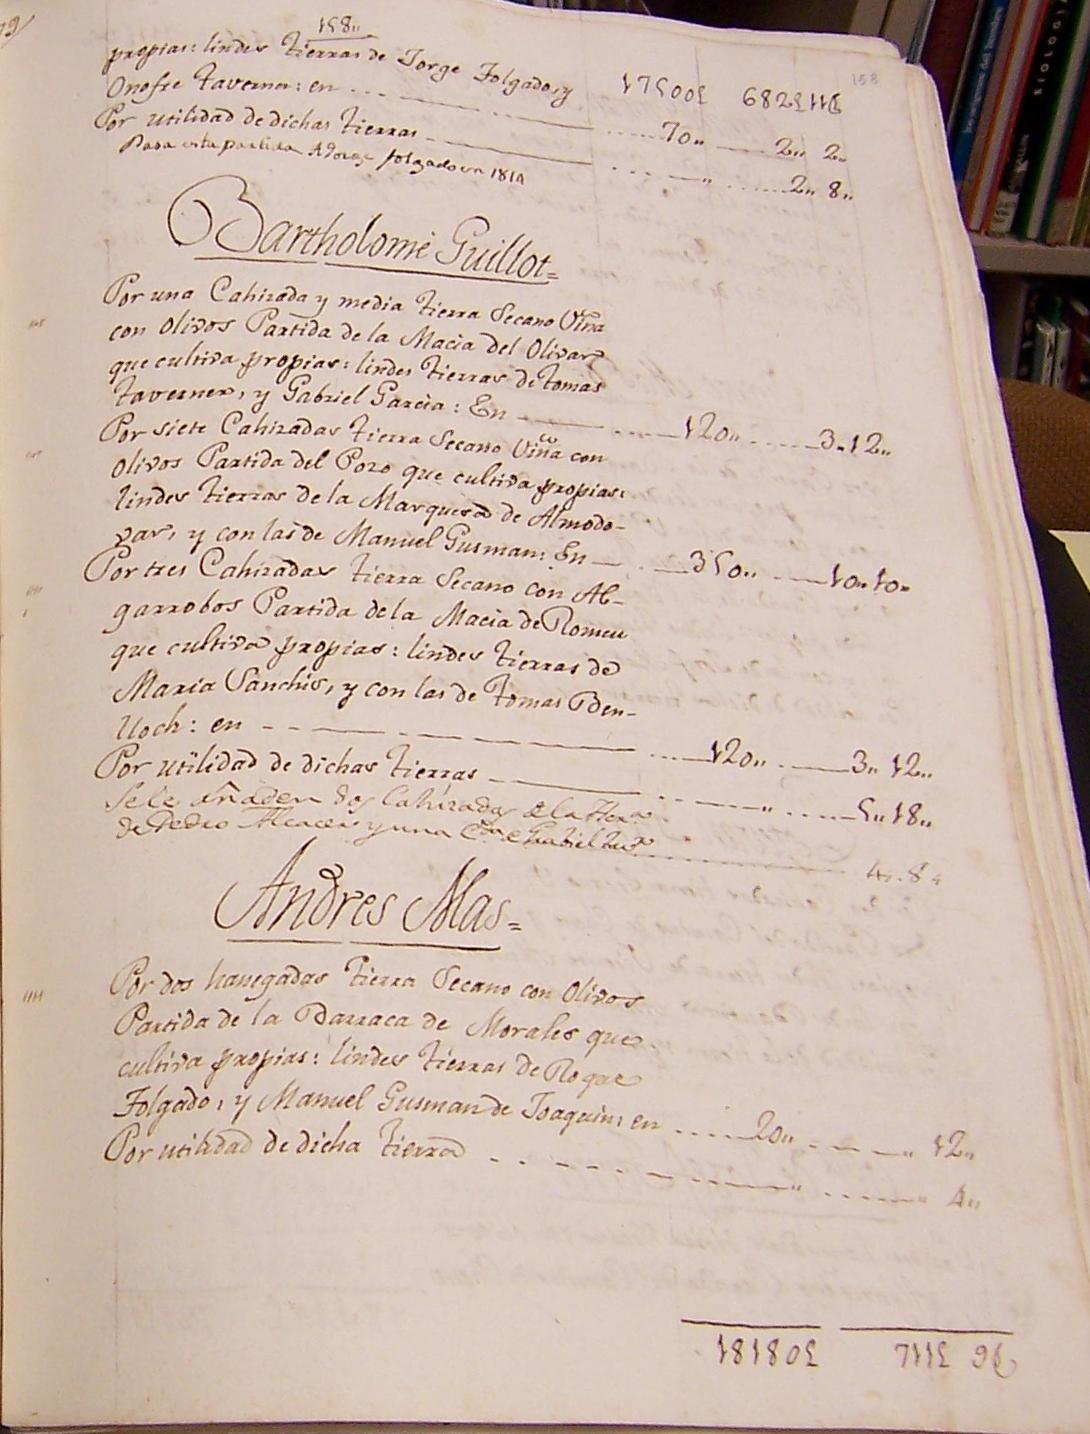 158,,
158
propias: lindes tierras de Jorge Folgado, y
Onofre Taverner: en 70,, 2,, 2,,
Por utilidad de dichas tierras ,, 2,, 8,,
Pasa esta partida A Jorge folgado en 1814
Bartholomè Guillot=
Por una Cahizada y media tierra Secano Viña
con Olivos Partida de la Macia del Olivar
que cultiva propias: lindes tierras de tomas
Taverner, y Gabriel Garcia: En 120,, 3,, 12,,
Por siete Cahizadas tierra Secano Viña con
Olivos Partida del Pozo que cultiva propias:
lindes tierras de la Marquesa de Almodo-
var, y con las de Manuel Gusman: En 350,, 10,, 10,,
Por tres Cahizadas tierra Secano con Al-
garrobos Partida de la Macia de Romeu
que cultiva propias: lindes tierras de
Maria Sanchis, y con las de Tomas Ben-
lloch: en 120,, 3,, 12,,
Por utilidad de dichas tierras ,, 5,, 18,,
Se le añaden dos Cahizadas
de Pedro Alcacer y una 4,, 8,,
Andres Mas=
Por dos hanegadas tierra Secano con Olivos
Partida de la Barraca de Morales que
cultiva propias: lindes tierras de Roque
Folgado, y Manuel Gusman de Joaquin: en 20,, ,, 12,,
Por utilidad de dicha tierra ,, ,, 4,,